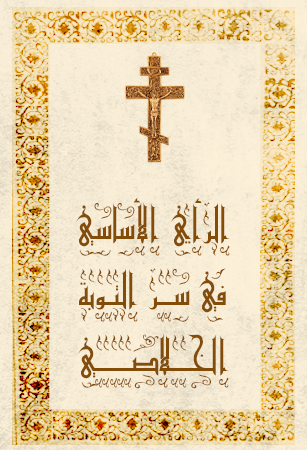 الرأي الأساسي
في سر التوبة
الخلاصي